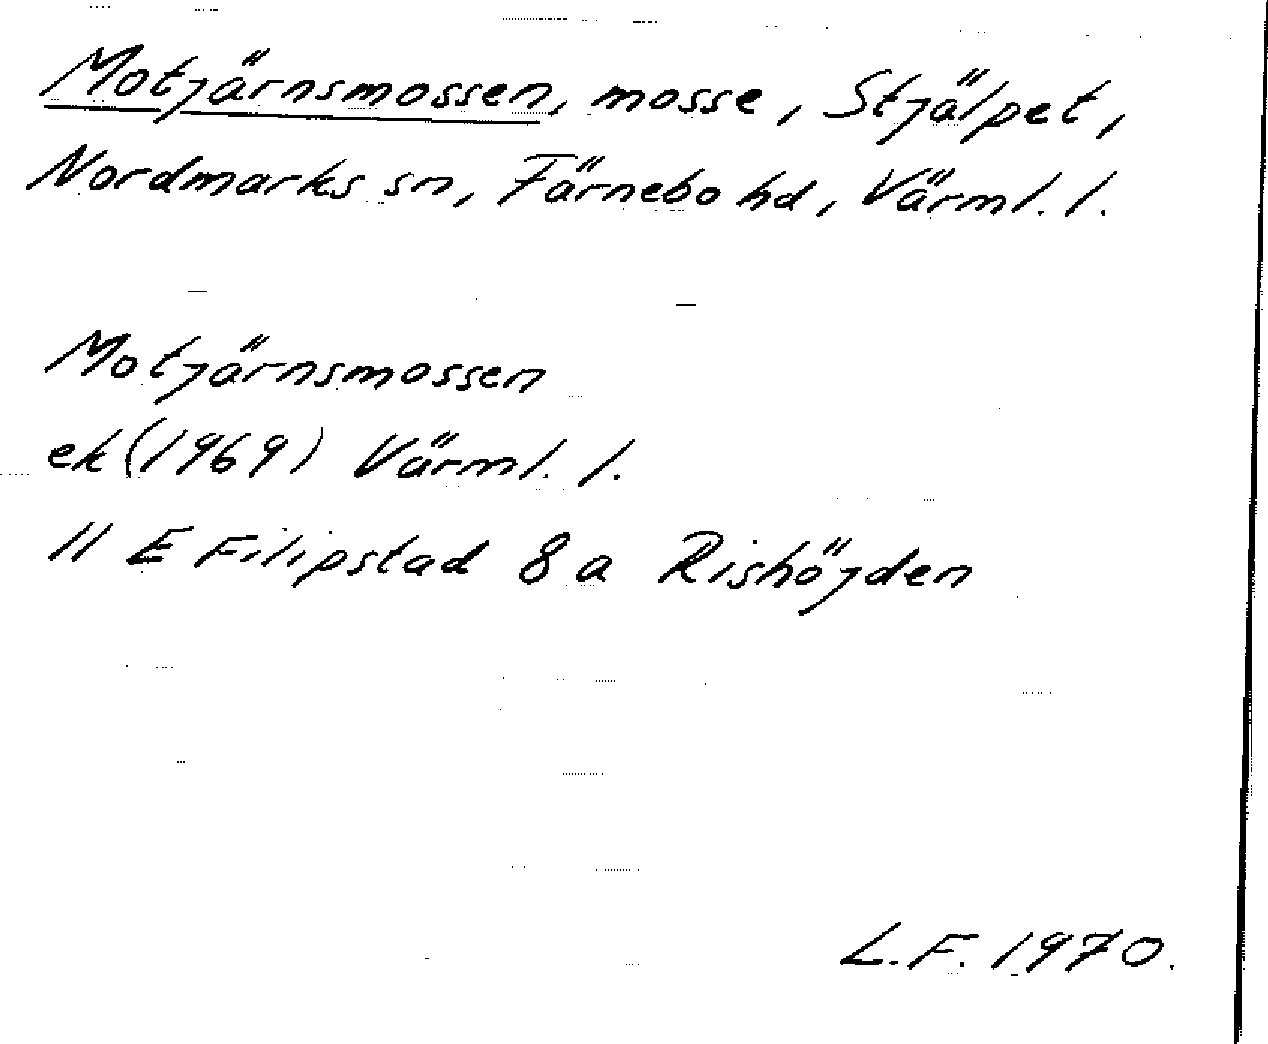 Motjärnsmossen, mosse, Stjälpet,
Nordmarks sn, Färnebo hd, Värml. l.
Motjärnsmossen
ek (1969) Värml. l.
11 E Filipstad 8 a Rishöjden
L.F. 1970.